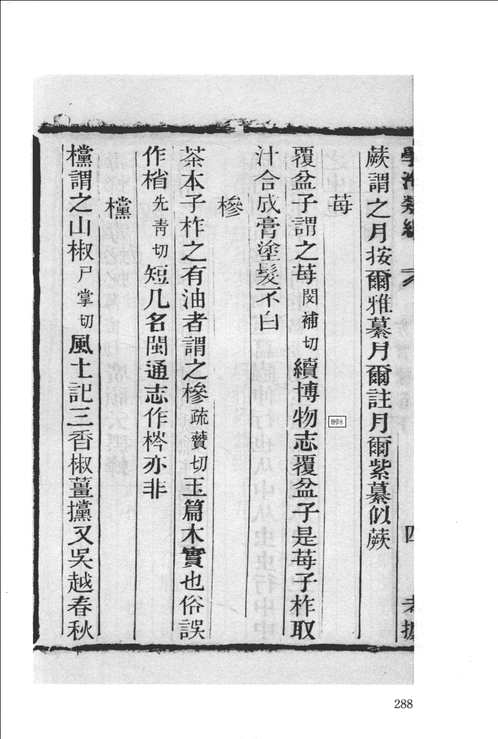 學海類編
四
蕨謂之月按爾雅藄月爾註月爾紫藄似蕨
苺
覆盆子謂之苺閔補切續博物志覆盆子是苺子柞取
汁合成膏塗髮不白
槮
茶本子柞之有油者謂之槮疏贊切玉篇木實也俗誤
作㮐先靑切短几名閩通志作梣亦非
欓
欓謂之山椒尸掌切風土記三香椒薑欓又吳越春秋
288